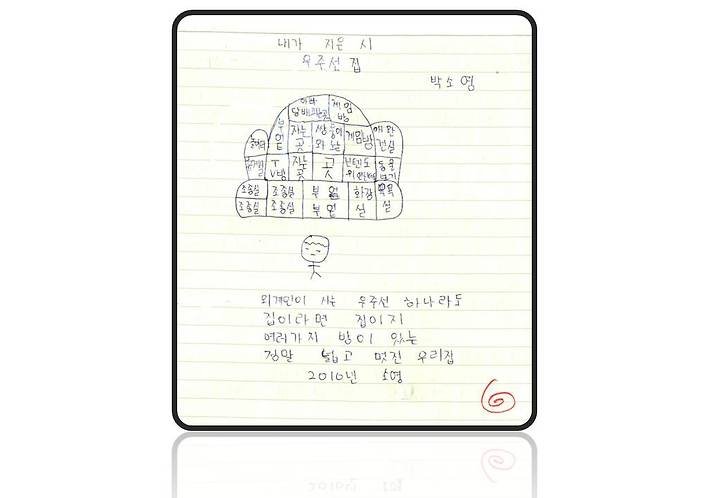 내가 지은 시
우주선 집
박소영
아빠 게임
담배피는곳 방
부엌 자는곳 쌍둥이와 노는 게임방 애완견실
TV방 자는곳 곳 닌텐도 동물
조종실 조종실 부엌 화장실 목욕실
조종실 조종실 부엌
외계인이 사는 우주선 하나라도
집이라면 집이지
여러가지 방이 있는
정말 넓고 멋진 우리집
2010년 소영